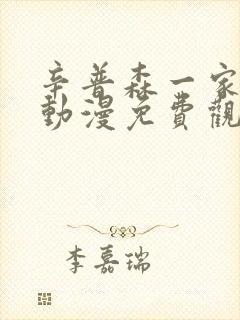 辛普森一家
動漫免費觀
李嘉瑞